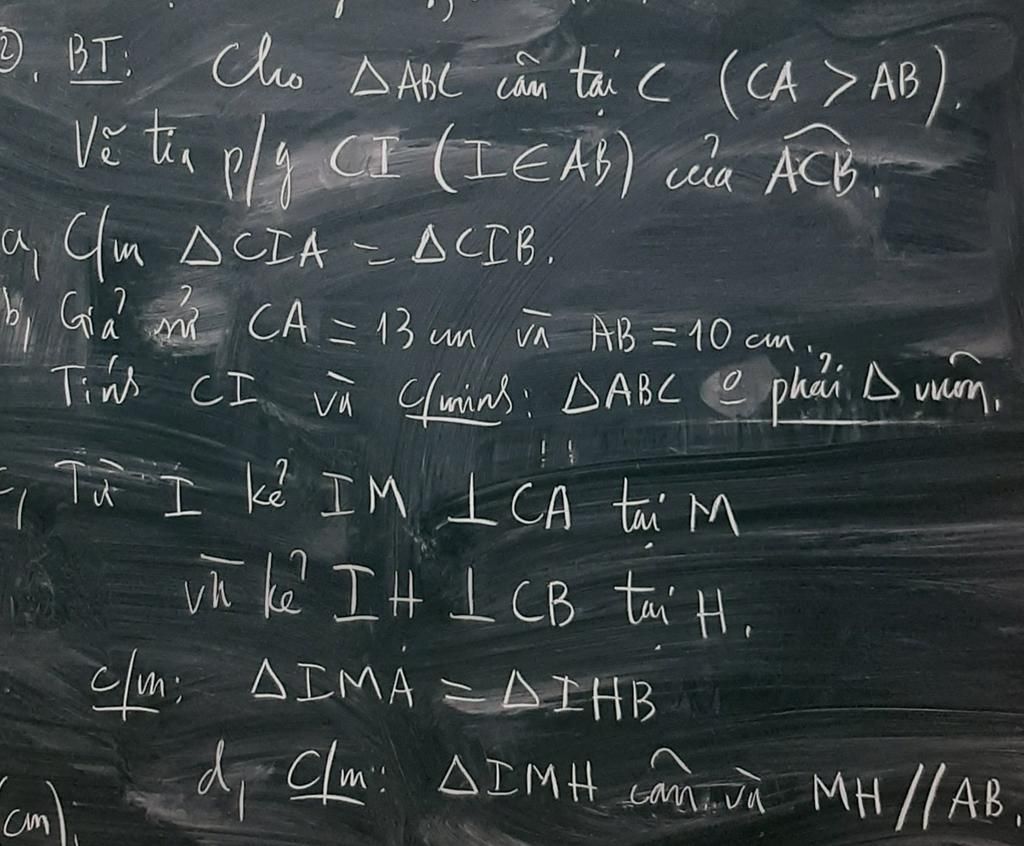 ②. BT: Cho △ABC cân tại C (CA > AB).
Vẽ tia p/g CI (I∈AB) của ACB.
a, C/m △CIA = △CIB.
b, Giả sử CA = 13 cm và AB = 10 cm.
Tính CI và c/minh: △ABC o phải △ vuông.
c, Từ I kẻ IM ⊥ CA tại M
và kẻ IH ⊥ CB tại H.
c/m: △IMA = △IHB
d, C/m: △IMH cân và MH // AB.
(cm).